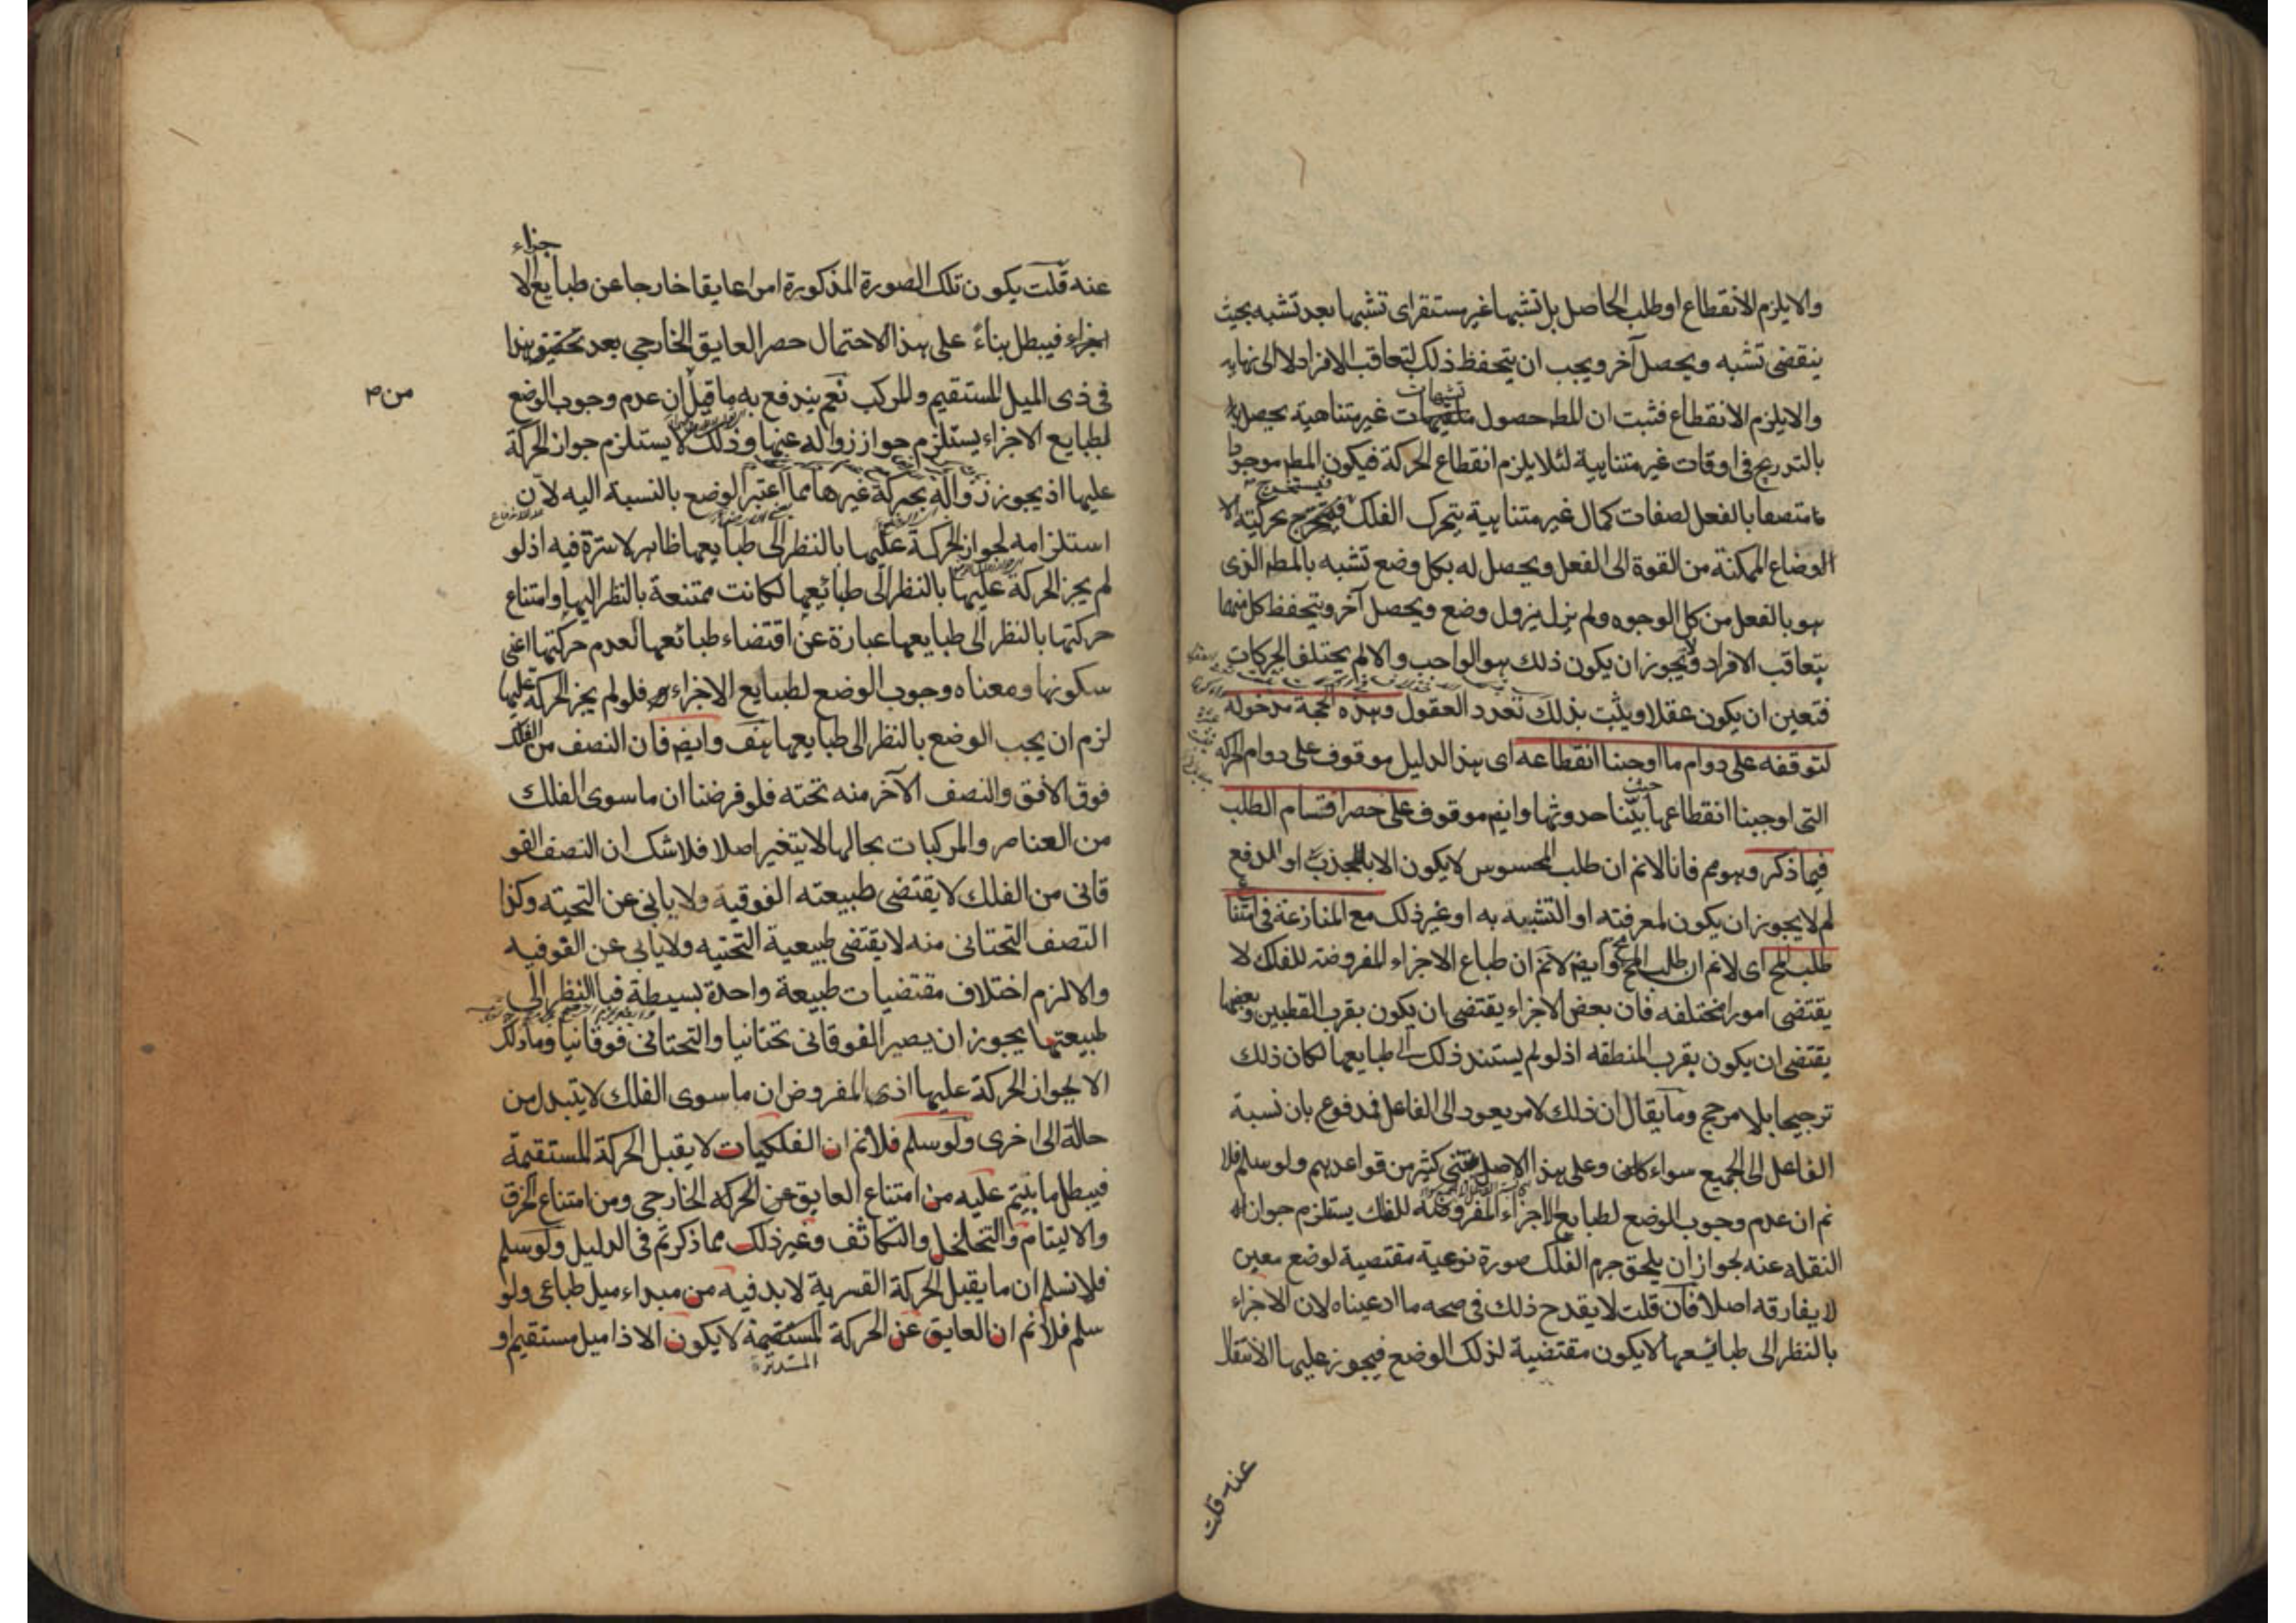 والا يلزم الانقطاع او طلب الحاصل بل تشبها غير مستقر اى تشبها بعد تشبه بحيث
ينقضى تشبه ويحصل آخر ويجب ان يتحفظ ذلك لتعاقب الافراد لا الى نهاية
تشبهات
والا يلزم الانقطاع فثبت ان المط حصول غير متناهية يحصل
بالتدريج فى اوقات غير متناهية لئلا يلزم انقطاع الحركة فيكون المط موجودا
متصفا بالفعل لصفات كمال غير متناهية يتحرك الفلك بحركته الا
الوضاع الممكنة من القوة الى الفعل ويحصل له بكل وضع تشبه بالمط الذى
هو بالفعل من كل الوجوه ولم يزل يزول وضع ويحصل آخر ويتحفظ كل منهما
بتعاقب الافراد ولا يجوز ان يكون ذلك هو الواجب والا لم يختلف الحركات
فتعين ان يكون عقلا ويثبت بذلك تعدد العقول وهذه الحجة مدخولة
لتوقفه على دوام ما اوجبنا انقطاعه اى هذا الدليل موقوف على دوام الحركة
حيث
التى اوجبنا انقطاعها بينا حدوثها وايض موقوف على حصر اقسام الطلب
فيما ذكر وهو مم فانا لانم ان طلب المحسوس لا يكون الا للجذب او الدفع
لم لا يجوز ان يكون لمعرفته او التشبيه به او غير ذلك مع المنازعة فى امتناع
طلب المح اى لانم ان طلب المح مح وايض لانم ان طباع الاجزاء المفروضة للفلك لا
يقتضى امورا مختلفه فان بعض الاجزاء يقتضى ان يكون بقرب القطبين وبعضها
يقتضى ان يكون بقرب المنطقه اذ لو لم يستند ذلك الى طبايعها لكان ذلك
ترجيحا بلا مرجح وما يقال ان ذلك لامر يعود الى الفاعل فمدفوع بان نسبة
الفاعل الى الجميع سواء كان وعلى هذا الاصل يبتنى كثير من قواعدهم ولو سلم فلا
نم ان عدم وجوب الوضع لطبايع الاجزاء المفروضه للفلك يستلزم جواز
النقله عنه لجواز ان يلحق جرم الفلك صورة نوعية مقتضية لوضع معين
لا يفارقه اصلا فآن قلت لا يقدح ذلك فى صحه ما ادعيناه لان الاجزاء
بالنظر الى طبائعها لا يكون مقتضية لذلك الوضع فيجوز عليها الانتقال
عنه قلت
جزاء
عنه قلت يكون تلك الصورة المذكورة امرا عايقا خارجا عن طبايع الا
جزاء فيبطل بناءً على هذا الاحتمال حصر العايق الخارجى بعد تحقيق هذا
فى ذى الميل المستقيم وللمركب نعم يندفع به ما قيل ان عدم وجوب الوضع
من
لطبايع الاجزاء يستلزم جواز زواله عنها وذلك لا يستلزم جواز الحركة
عليها اذ يجوز زواله بحركة غيرها مما اعتبر الوضع بالنسبة اليه لان
استلزامه لجواز الحركة عليها بالنظر الى طبايعها ظاهر لا سترة فيه اذ لو
لم يجز الحركة عليها بالنظر الى طبائعها لكانت ممتنعة بالنظر اليها وامتناع
حركتها بالنظر الى طبايعها عبارة عن اقتضاء طبائعها لعدم حركتها اعنى
سكونها ومعناه وجوب الوضع لطبايع الاجزاء فلو لم يجز الحركة عليها
لزم ان يجب الوضع بالنظر الى طبايعها هف وايض فان النصف من الفلك
فوق الافق والنصف الآخر منه تحته فلو فرضنا ان ما سوى الفلك
من العناصر والمركبات بحالها لا يتغير اصلا فلا شك ان النصف الفو
قانى من الفلك لا يقتضى طبيعته الفوقية ولا يابى عن التحتية وكذا
النصف التحتانى منه لا يقتضى طبيعية التحتيه ولا يابى عن الفوقيه
والا لزم اختلاف مقتضيات طبيعة واحدة بسيطة فبالنظر الى
طبيعتها يجوز ان يصير الفوقانى تحتانيا والتحتانى فوقانيا وما ذلك
الا لجواز الحركة عليها اذ المفروض ان ما سوى الفلك لا يتبدل من
حالة الى اخرى ولو سلم فلانم ان الفلكيات لا يقبل الحركة المستقيمة
فيبطل ما بنيتم عليه من امتناع العايق عن الحركة الخارجى ومن امتناع الخرق
والاليتام والتخلخل والتكاثف وغير ذلك مما ذكرتم فى الدليل ولو سلم
فلا نسلم ان ما يقبل الحركة القسرية لا بد فيه من مبداء ميل طباعى ولو
سلم فلانم ان العايق عن الحركة المستقيمة لا يكون الا ذا ميل مستقيم او
المستديرة